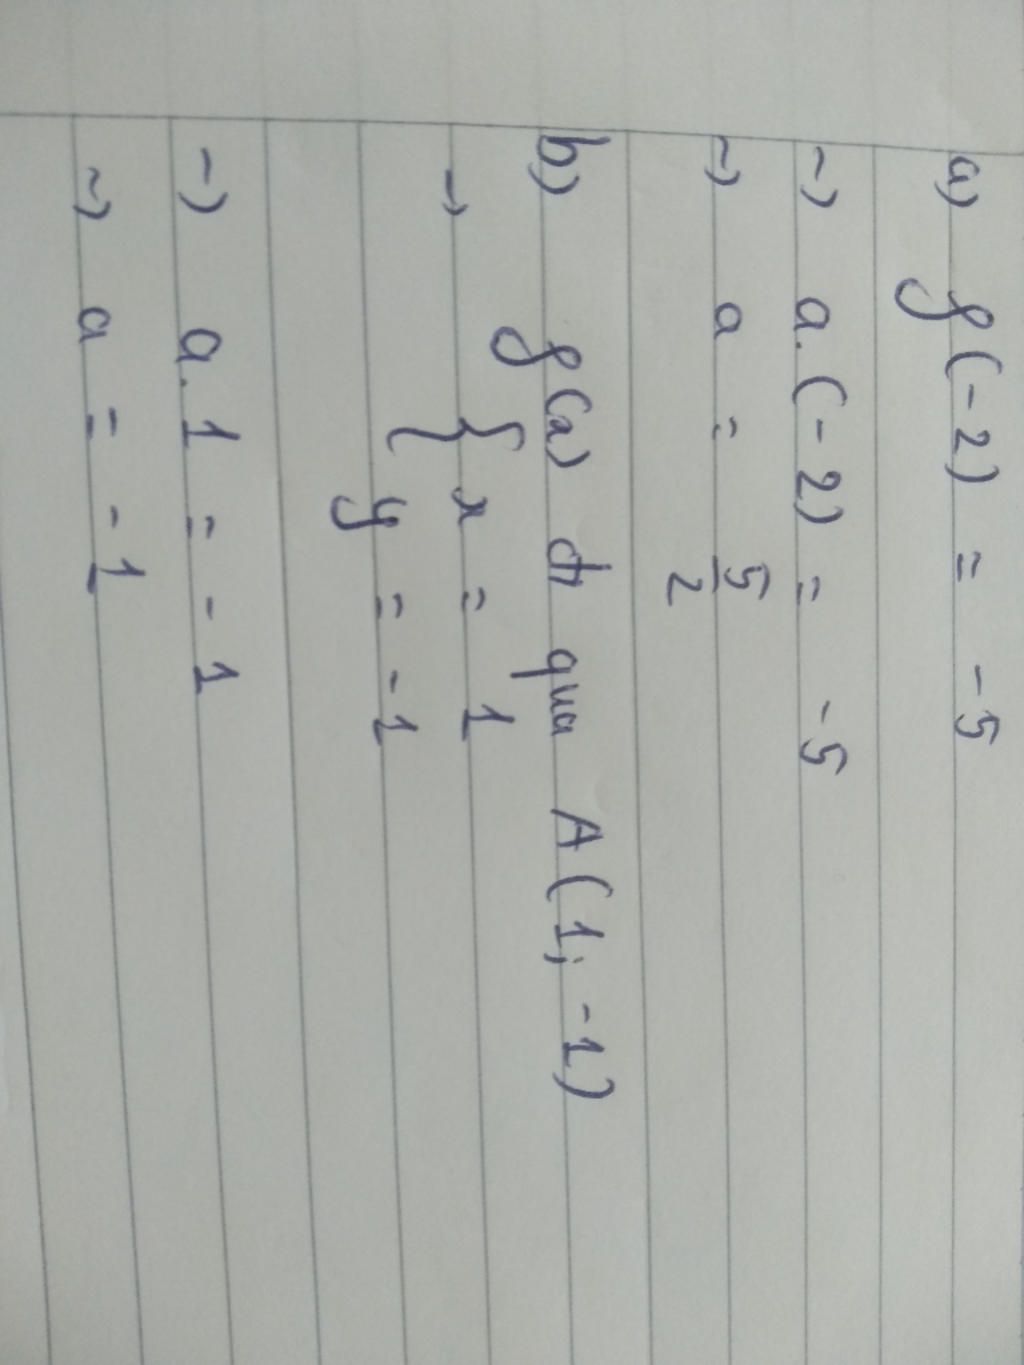 a) f(-2) = -5
→ a.(-2) = -5
→ a = 5/2
b) f(x) đi qua A(1; -1)
→ { x = 1
y = -1
→ a.1 = -1
→ a = -1